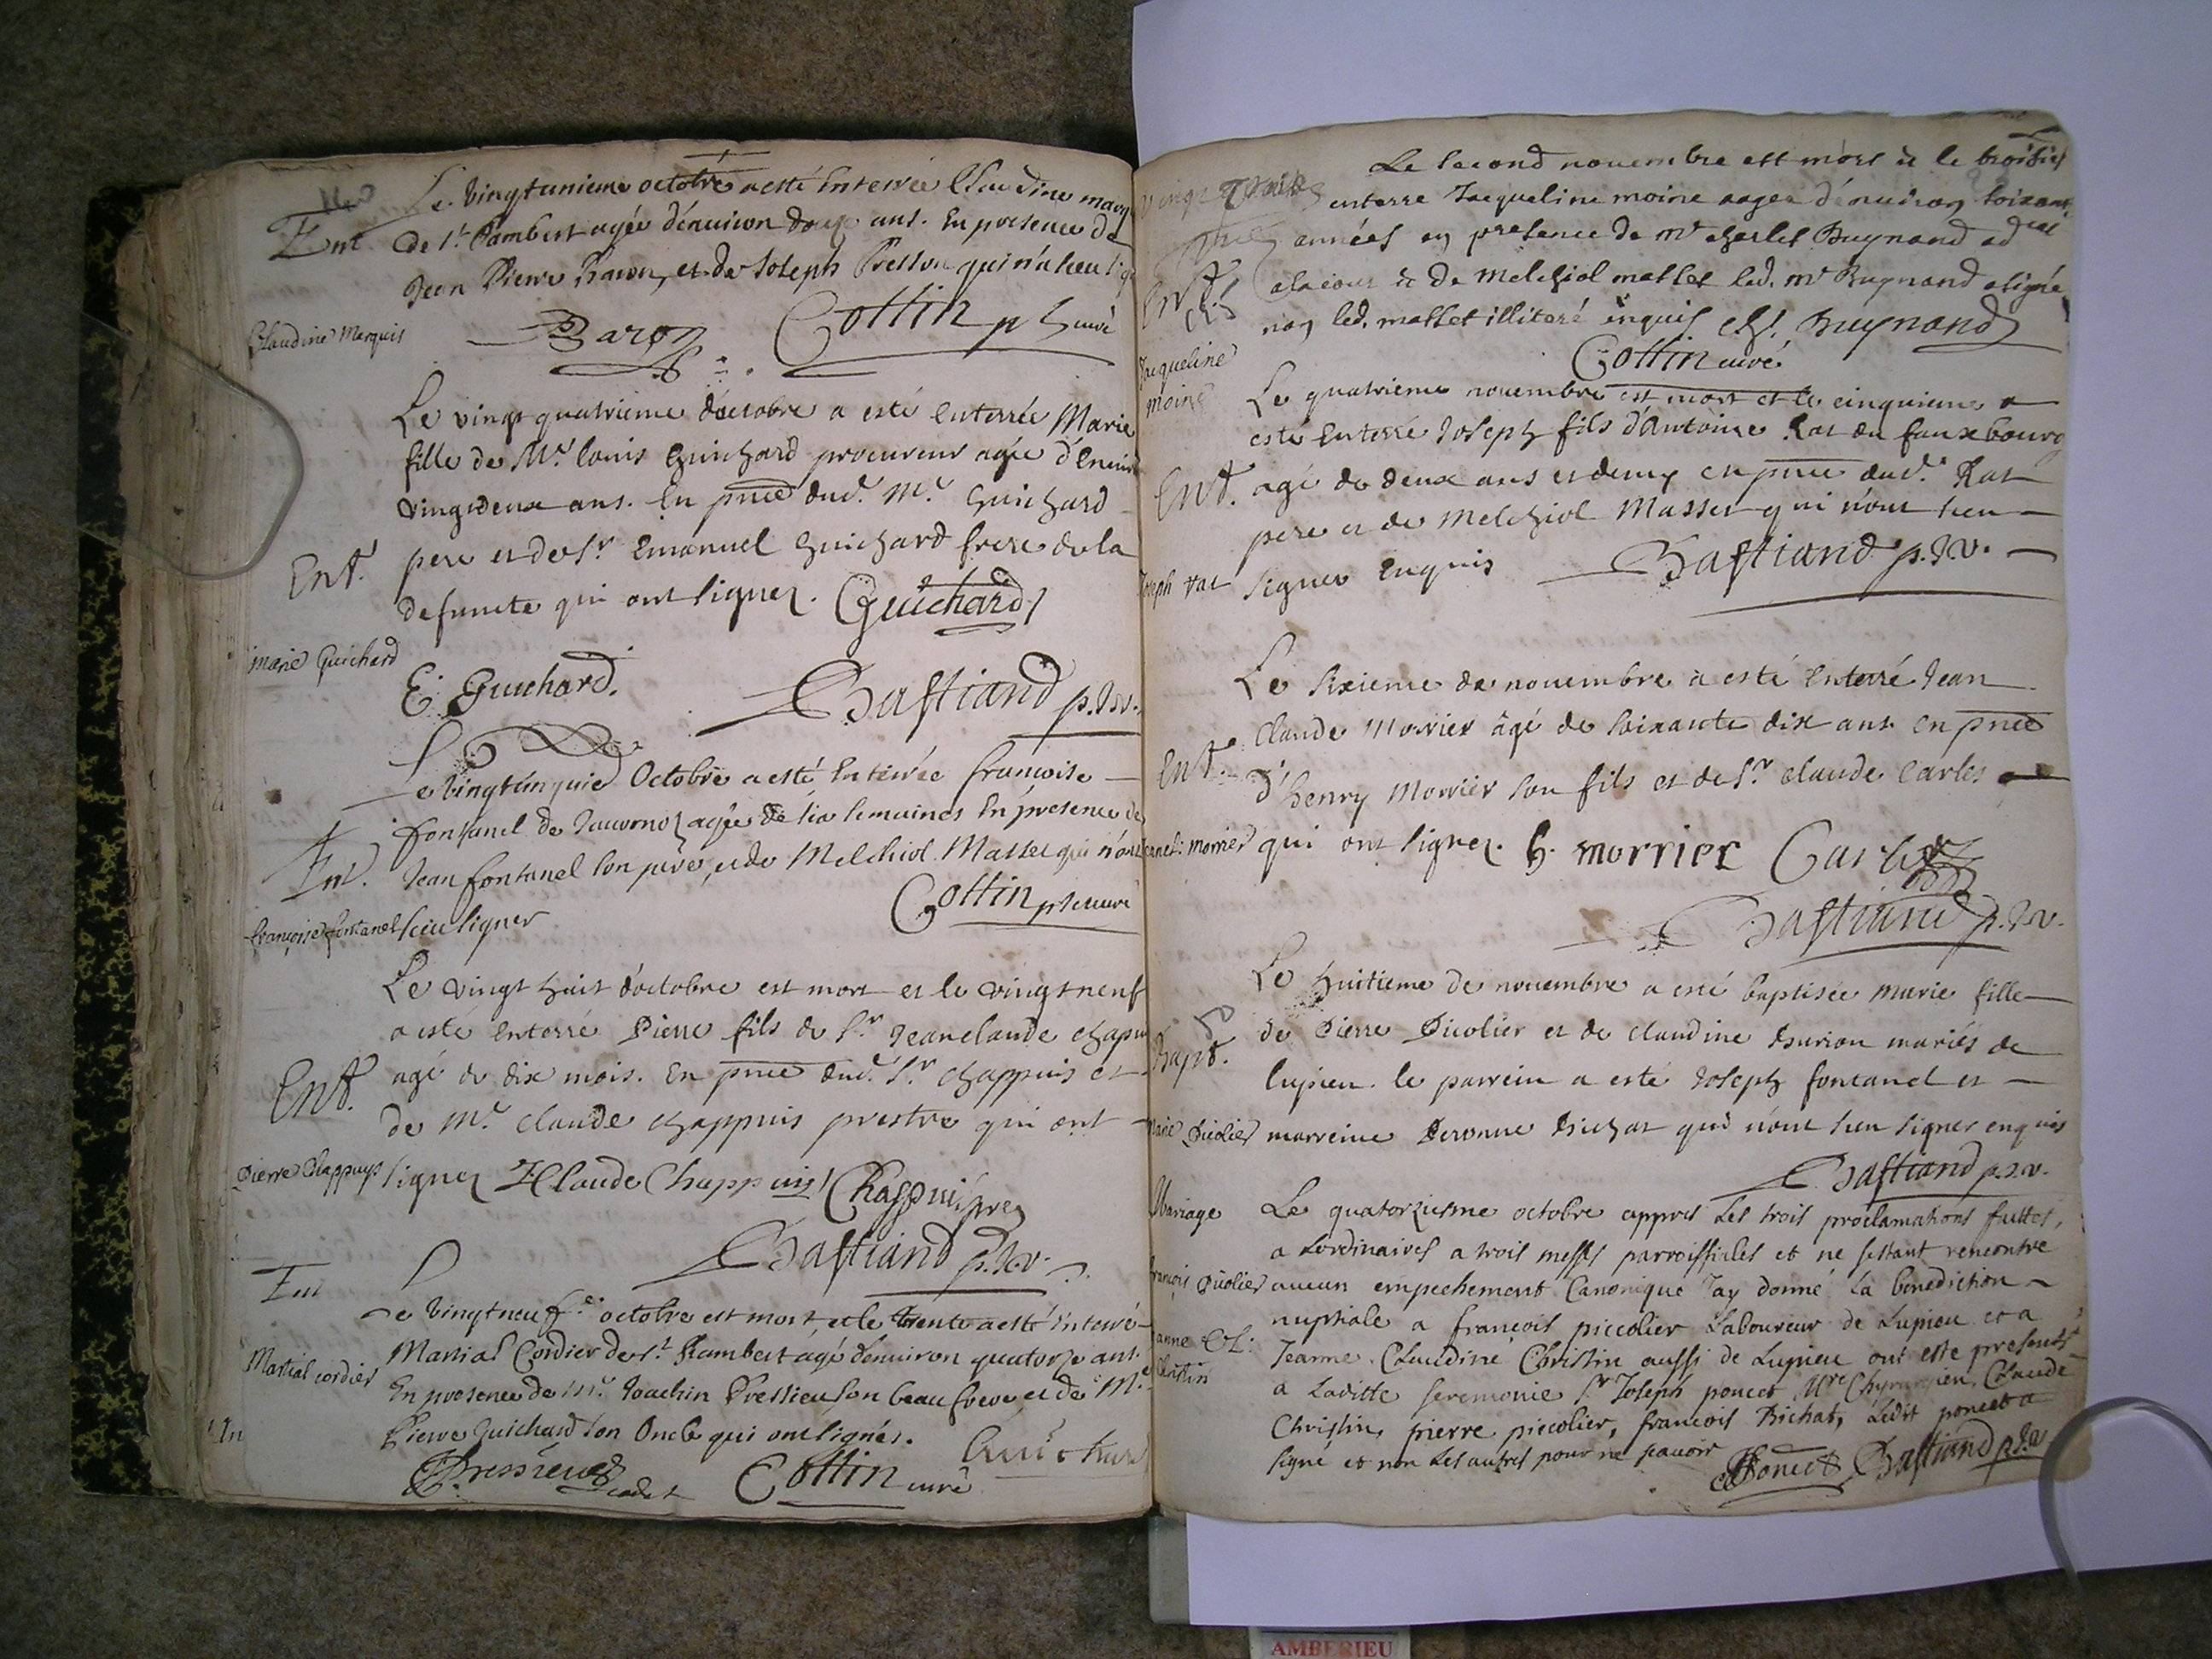 Le vingtunieme octobre a esté Enterrée Claudine marq
Ent de St Rambert agée d'enuiron douze ans. En presence de
Jean Pierre Baron, et de Joseph qui n'a sceu sig
Claudine Marquis
Baron Cottin p curé
Le vingt quatrieme d'octobre a esté enterrée Marie
fille de Mr. Louis Guichard procureur agée d'Enuir
vingtdeux ans. En pnce dud. Mr. Guichard
Ent. pere et de Sr Emanuel Guichard frere de la
defuncte qui ont signez. Guichard
marie Guichard
E. Guichard. Bastiand p. & v.
Le vingtcinquie Octobre a esté Enterrée francoise
fontanel de agée de six semaines En presence de
Ent. Jean fontanel son pere, et de Melchiol Masset qui n'ont
françoise fontanel sceu signer Cottin p curé
Le vingt huit d'octobre est mort et le vingt neuf
a esté enterré Pierre fils de Sr Jeanclaude chapu
Ent. agé de dix mois. En pnce dud. Sr chappuis et
de Mr. Claude chappuis prestre qui ont
Pierre Chappuys signez Claude Chappuis Chappuis pre
Bastiand p. & v.
Ent Le vingtneuf octobre est mort, et le trente a esté Enterré
Martial cordier Martial Cordier de St Rambert agé d'enuiron quatorze ans.
En presence de mr. Joachin Pressieu son beau frere, et de Mr
Pierre Guichard son Oncle qui ont signés.
Pressieu cadet Cottin curé Guichard
Le second nouembre est mort & le troisie
enterre Jaqueline moine agee d'enuiron soixant
années en presence de mr charles Buynand
Ent. & de Melchiol masset led. mr Buynand a signé
non led. masset illiteré enquis ch. Buynand
Jaqueline moine
Cottin curé
Le quatrieme nouembre est mort et le cinquieme a
esté Enterré Joseph fils d'Antoine Rat du fauxbourg
Ent. agé de deux ans et demy en pnce dud. Rat
pere et de Melchiol Masset qui n'ont sceu
Joseph rat signer Enquis Bastiand p. & v.
Le sixieme de nouembre a esté Enterré Jean
Claude Morrier âgé de soixante dix ans en pnce
Ent. d'henry Morrier son fils et de Sr. claude Carles
morrier qui ont signez. h. morrier Carles
Bastiand p. & v.
Le huitieme de nouembre a esté baptisée marie fille
de Pierre Picolier et de claudine mariés de
Bapt. lupieu. le parrein a esté Joseph fontanel et
marie Picolier marreine Peronne Bichat qui n'ont sceu signer enquis
Bastiand p. & v.
Mariage Le quatorziesme octobre appres Les trois proclamations faittes,
a Lordinaires a trois messes parroissiales et ne sestant rencontre
françois Picolier aucun empechement Canonique Jay donné la benediction
nuptiale a françois piccolier Laboureur de Lupieu et a
Jeanne Cl: Christin Jeanne Claudine Christin aussi de Lupieu ont este presents
a Laditte seremonie Sr Joseph poncet Mre Chyrurgien, Claude
Christin, pierre piccolier, francois Bichat, Ledit poncet a
signé et non Les autres pour ne scauoir Poncet Bastiand p. & v.
AMBERIEU